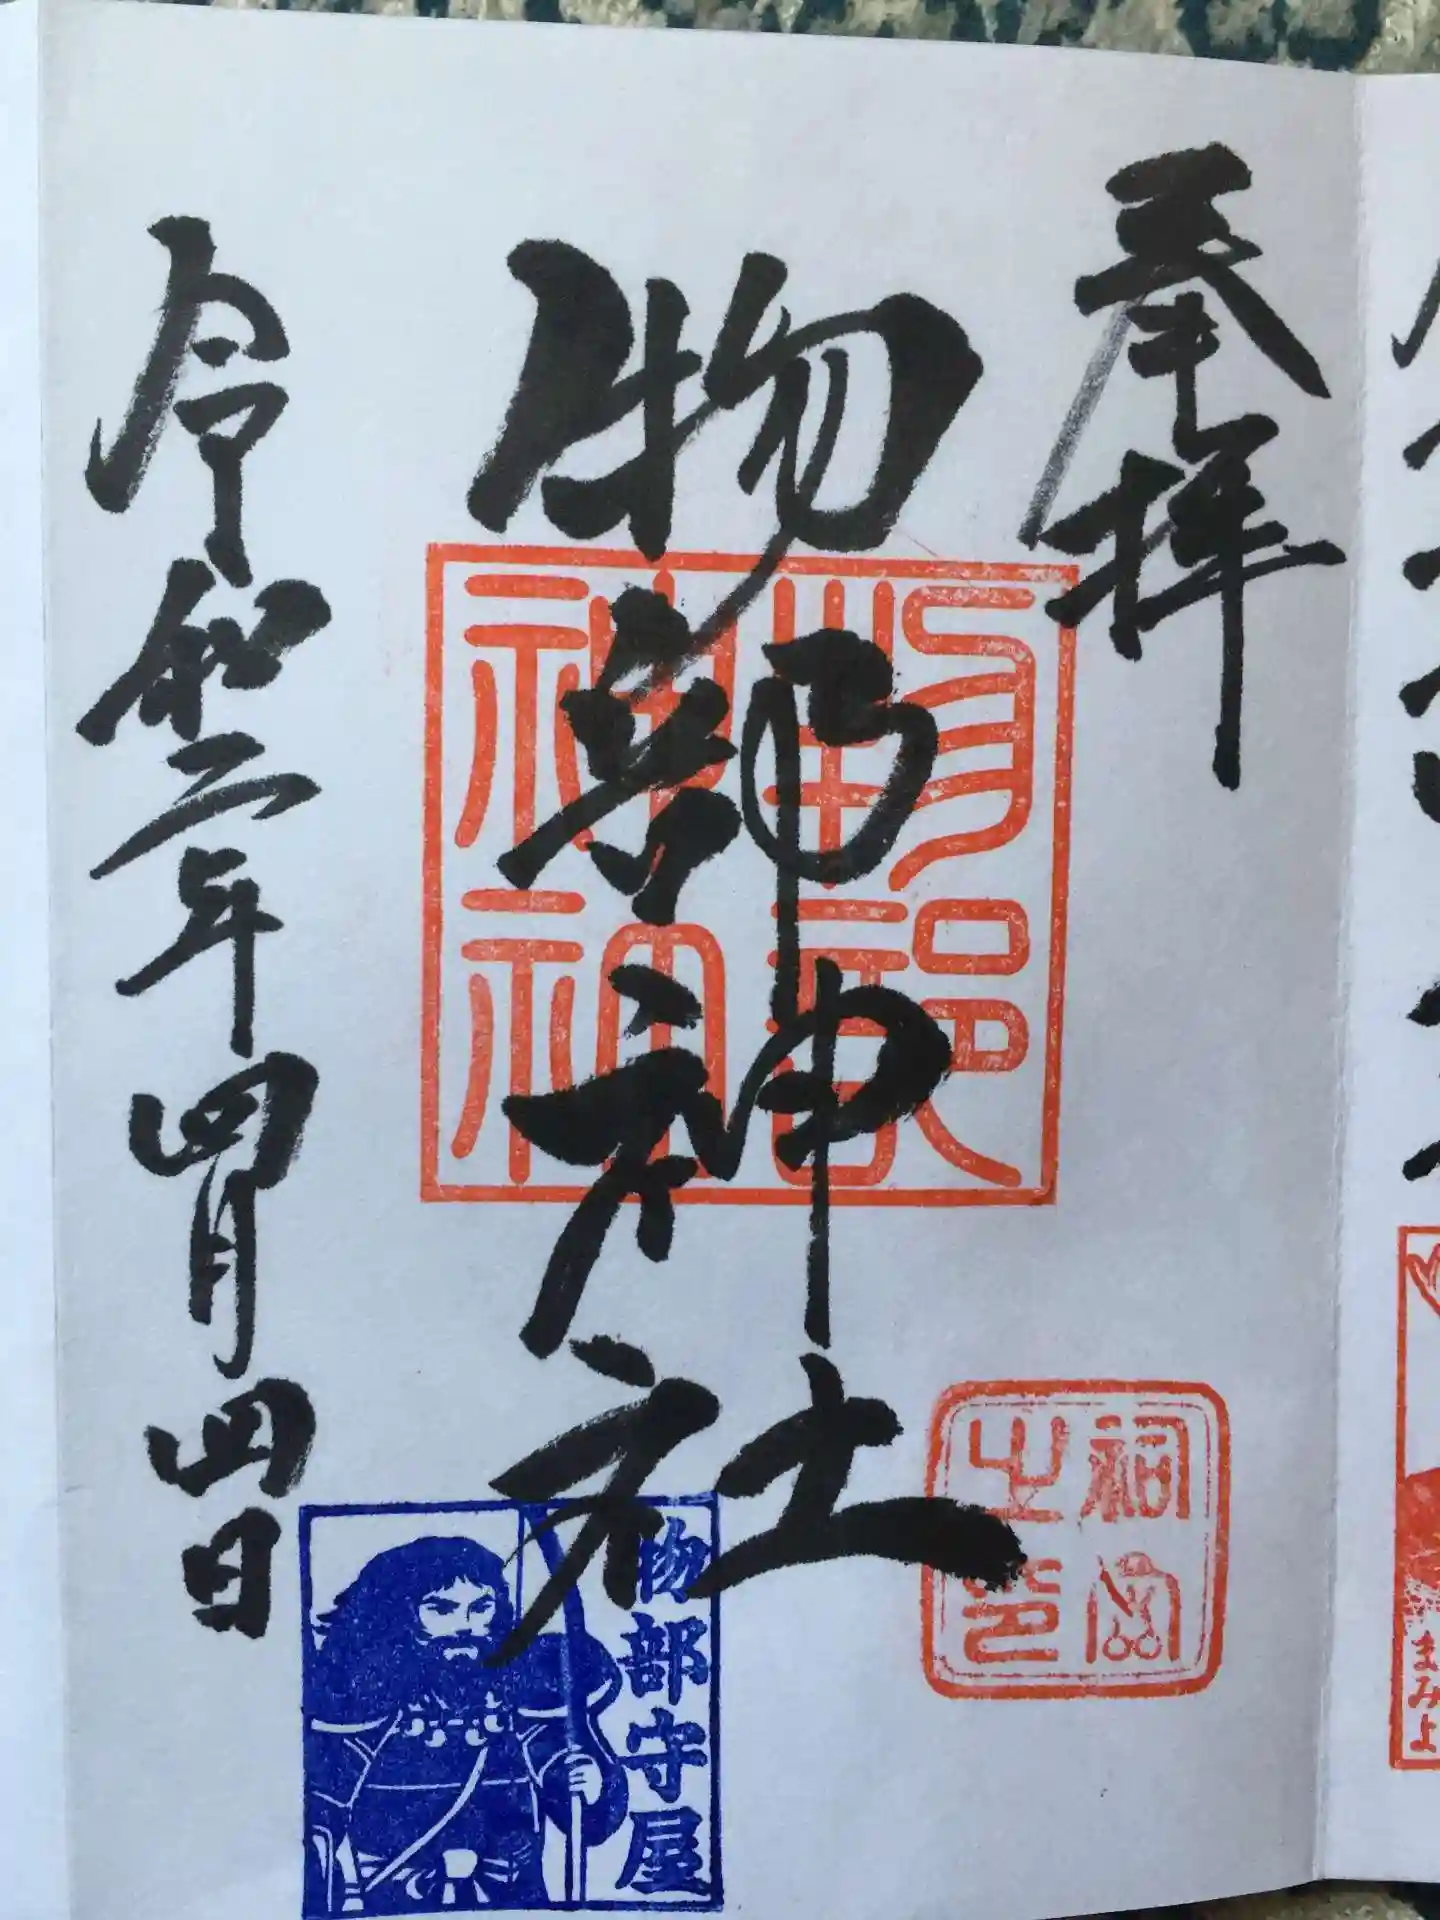 奉拝
物部神社
令和二年四月四日
物部神社
祠官之印
物部守屋
まみよ